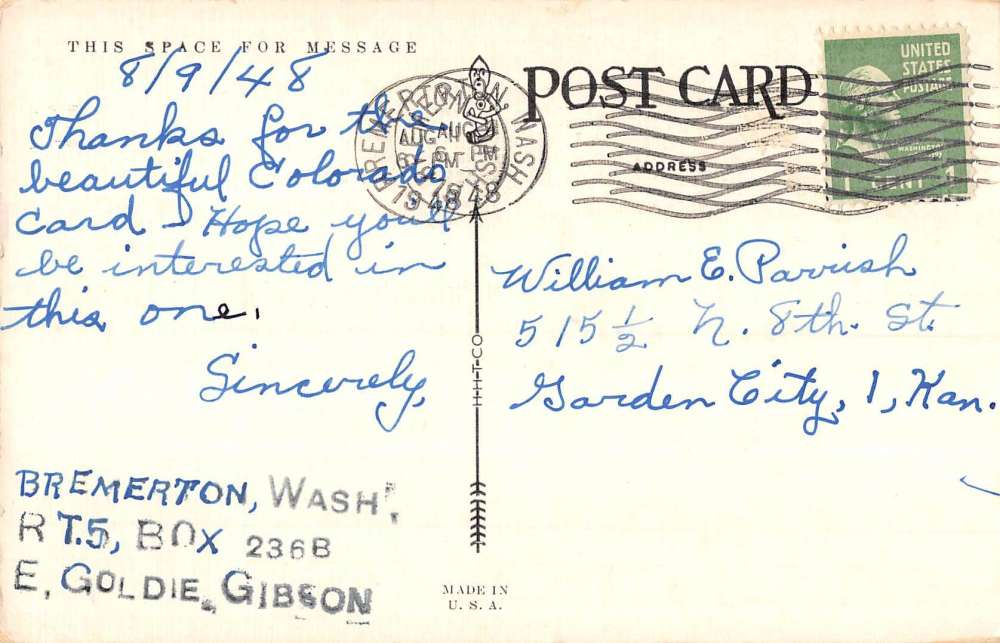 THIS SPACE FOR MESSAGE
8/9/48
Thanks for the
beautiful Colorado
card - Hope you'll
be interested in
this one.
Sincerely,
BREMERTON, WASH.
RT.5, BOX 236B
E. GOLDIE GIBSON
BREMERTON, WASH
AUG
PM
1948
POST CARD
ADDRESS
UNITED
STATES
POSTAGE
WASHINGTON
1 CENT 1
William E. Parrish
515 1/2 N. 8th. St.
Garden City, 1, Kan.
H-H-T-CO
MADE IN
U. S. A.